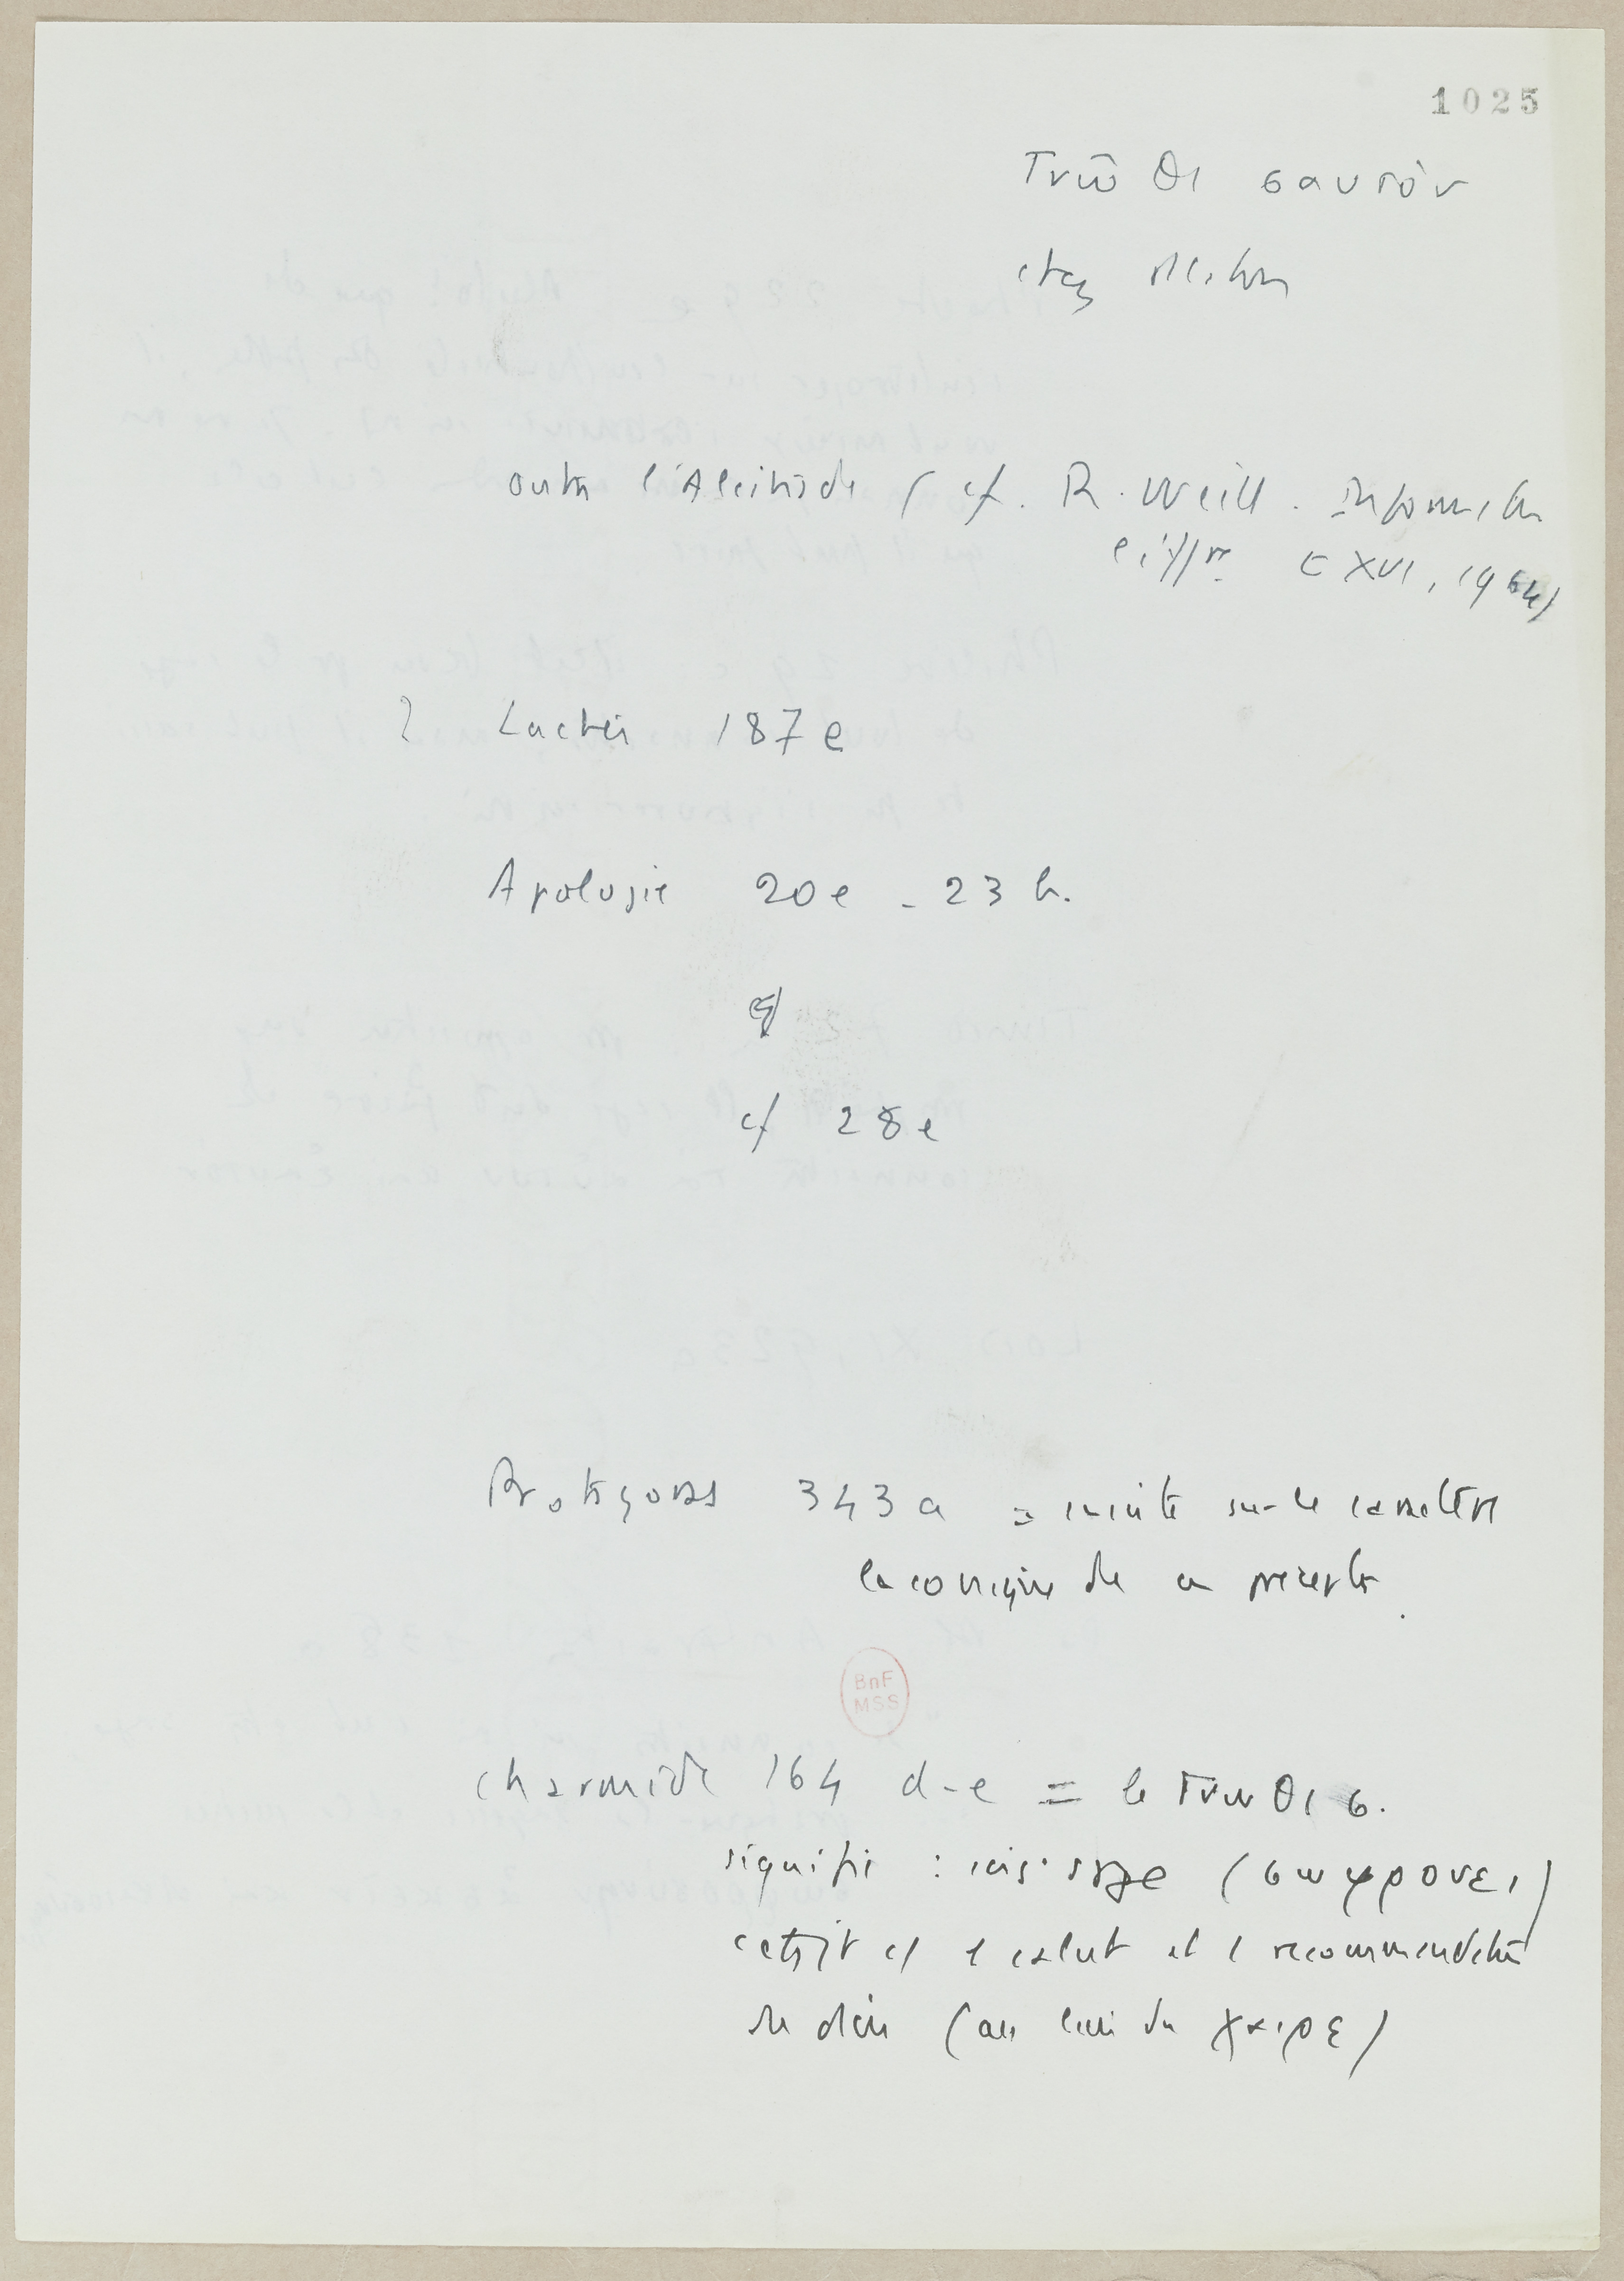 1025
Γνῶθι σαυτὸν
chez Platon
outre l'Alcibiade (cf. R. Weill. Information
littre CXVI, 1964)
? Lachès 187 e
Apologie 20 e - 23 b.
cf 28 e
Protagoras 343 a = insiste sur le caractère
laconique de ce précepte.
BnF
MSS
Charmide 164 d-e = le Γνωθι σ.
signifie : sois sage (σωφρονει)
et 1 salut et 1 recommendation
du dieu (au lieu du χαιρε)